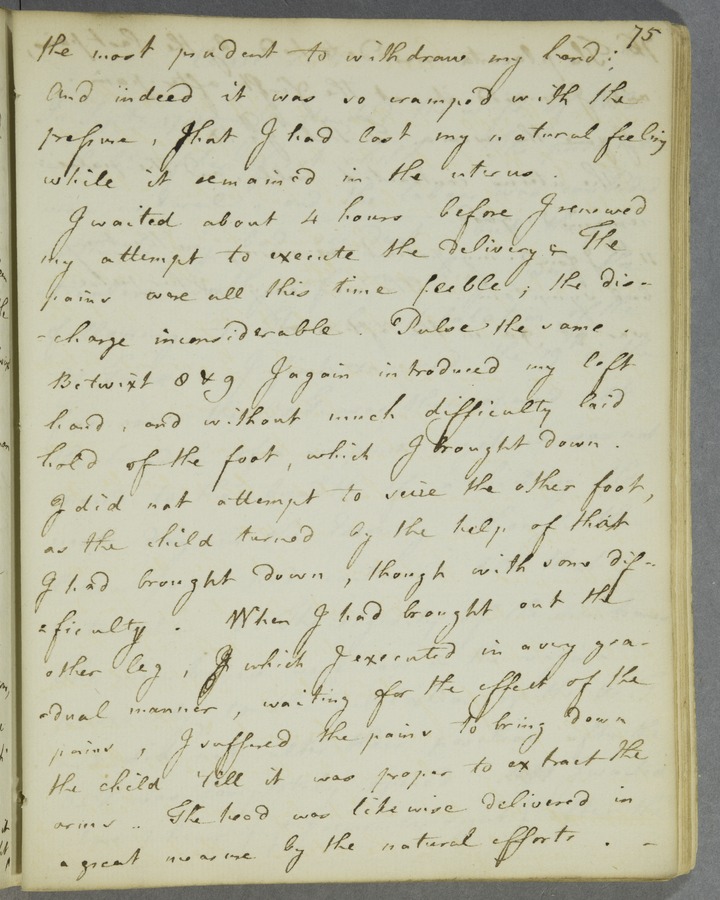 75
the most prudent to withdraw my hand;
And indeed it was so cramped with the
pressure, that I had lost my natural feeling
while it remained in the uterus.
I waited about 4 hours before I renewed
my attempt to execute the delivery & The
pains were all this time feeble; the dis-
-charge inconsiderable. Pulse the same.
Betwixt 8 & 9 I again introduced my left
hand, and without much difficulty laid
hold of the foot, which I brought down.
I did not attempt to seize the other foot,
as the child turned by the help of that
I had brought down, though with some dif-
=ficulty. When I had brought out the
other leg, which I executed in a very gra-
-dual manner, waiting for the effect of the
pains, I suffered the pains to bring down
the child till it was proper to extract the
arms.. The head was likewise delivered in
a great measure by the natural efforts. -